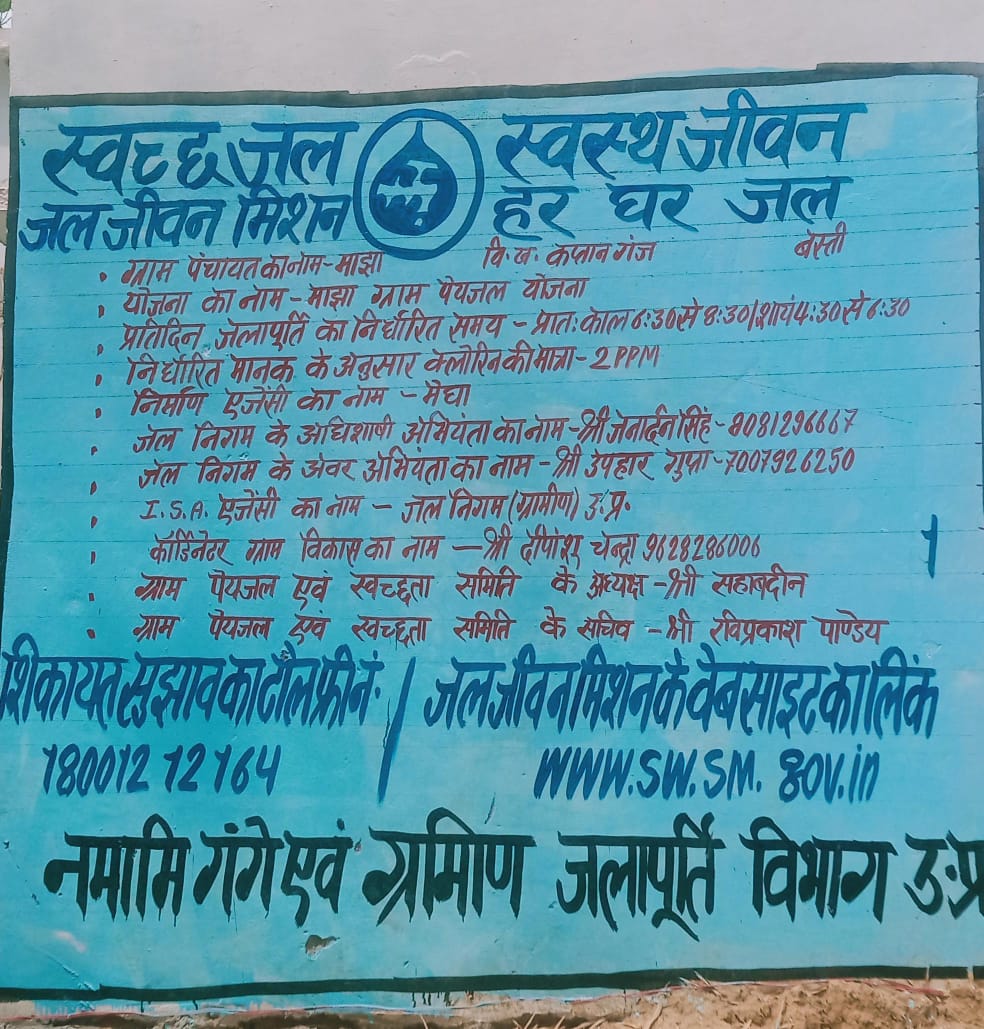 स्वच्छ जल स्वस्थ जीवन
जल जीवन मिशन हर घर जल
ग्राम पंचायत का नाम - माझा वि.ख. कप्तान गंज बस्ती
योजना का नाम - माझा ग्राम पेयजल योजना
प्रतिदिन जलापूर्ति का निर्धारित समय - प्रातःकाल 6:30 से 8:30/शायं 4:30 से 6:30
निर्धारित मानक के अनुसार क्लोरिन की मात्रा - 2 PPM
निर्माण एजेंसी का नाम - मेघा
जल निगम के अधिशाषी अभियंता का नाम - श्री जनार्दन सिंह - 8081296667
जल निगम के अवर अभियंता का नाम - श्री उपहार गुप्ता - 7007926250
I.S.A. एजेंसी का नाम - जल निगम (ग्रामीण) उ.प्र.
कॉर्डिनेटर ग्राम विकास का नाम - श्री दीपांश चन्द्रा 9628286006
ग्राम पेयजल एवं स्वच्छता समिति के अध्यक्ष - श्री सहाबदीन
ग्राम पेयजल एवं स्वच्छता समिति के सचिव - श्री रविप्रकाश पाण्डेय
शिकायत सुझाव का टोल फ्री नं. / जल जीवन मिशन के वेबसाइट का लिंक
180012 12164 WWW.SW.SM. gov.in
नमामि गंगे एवं ग्रमिण जलापूर्ति विभाग उ.प्र